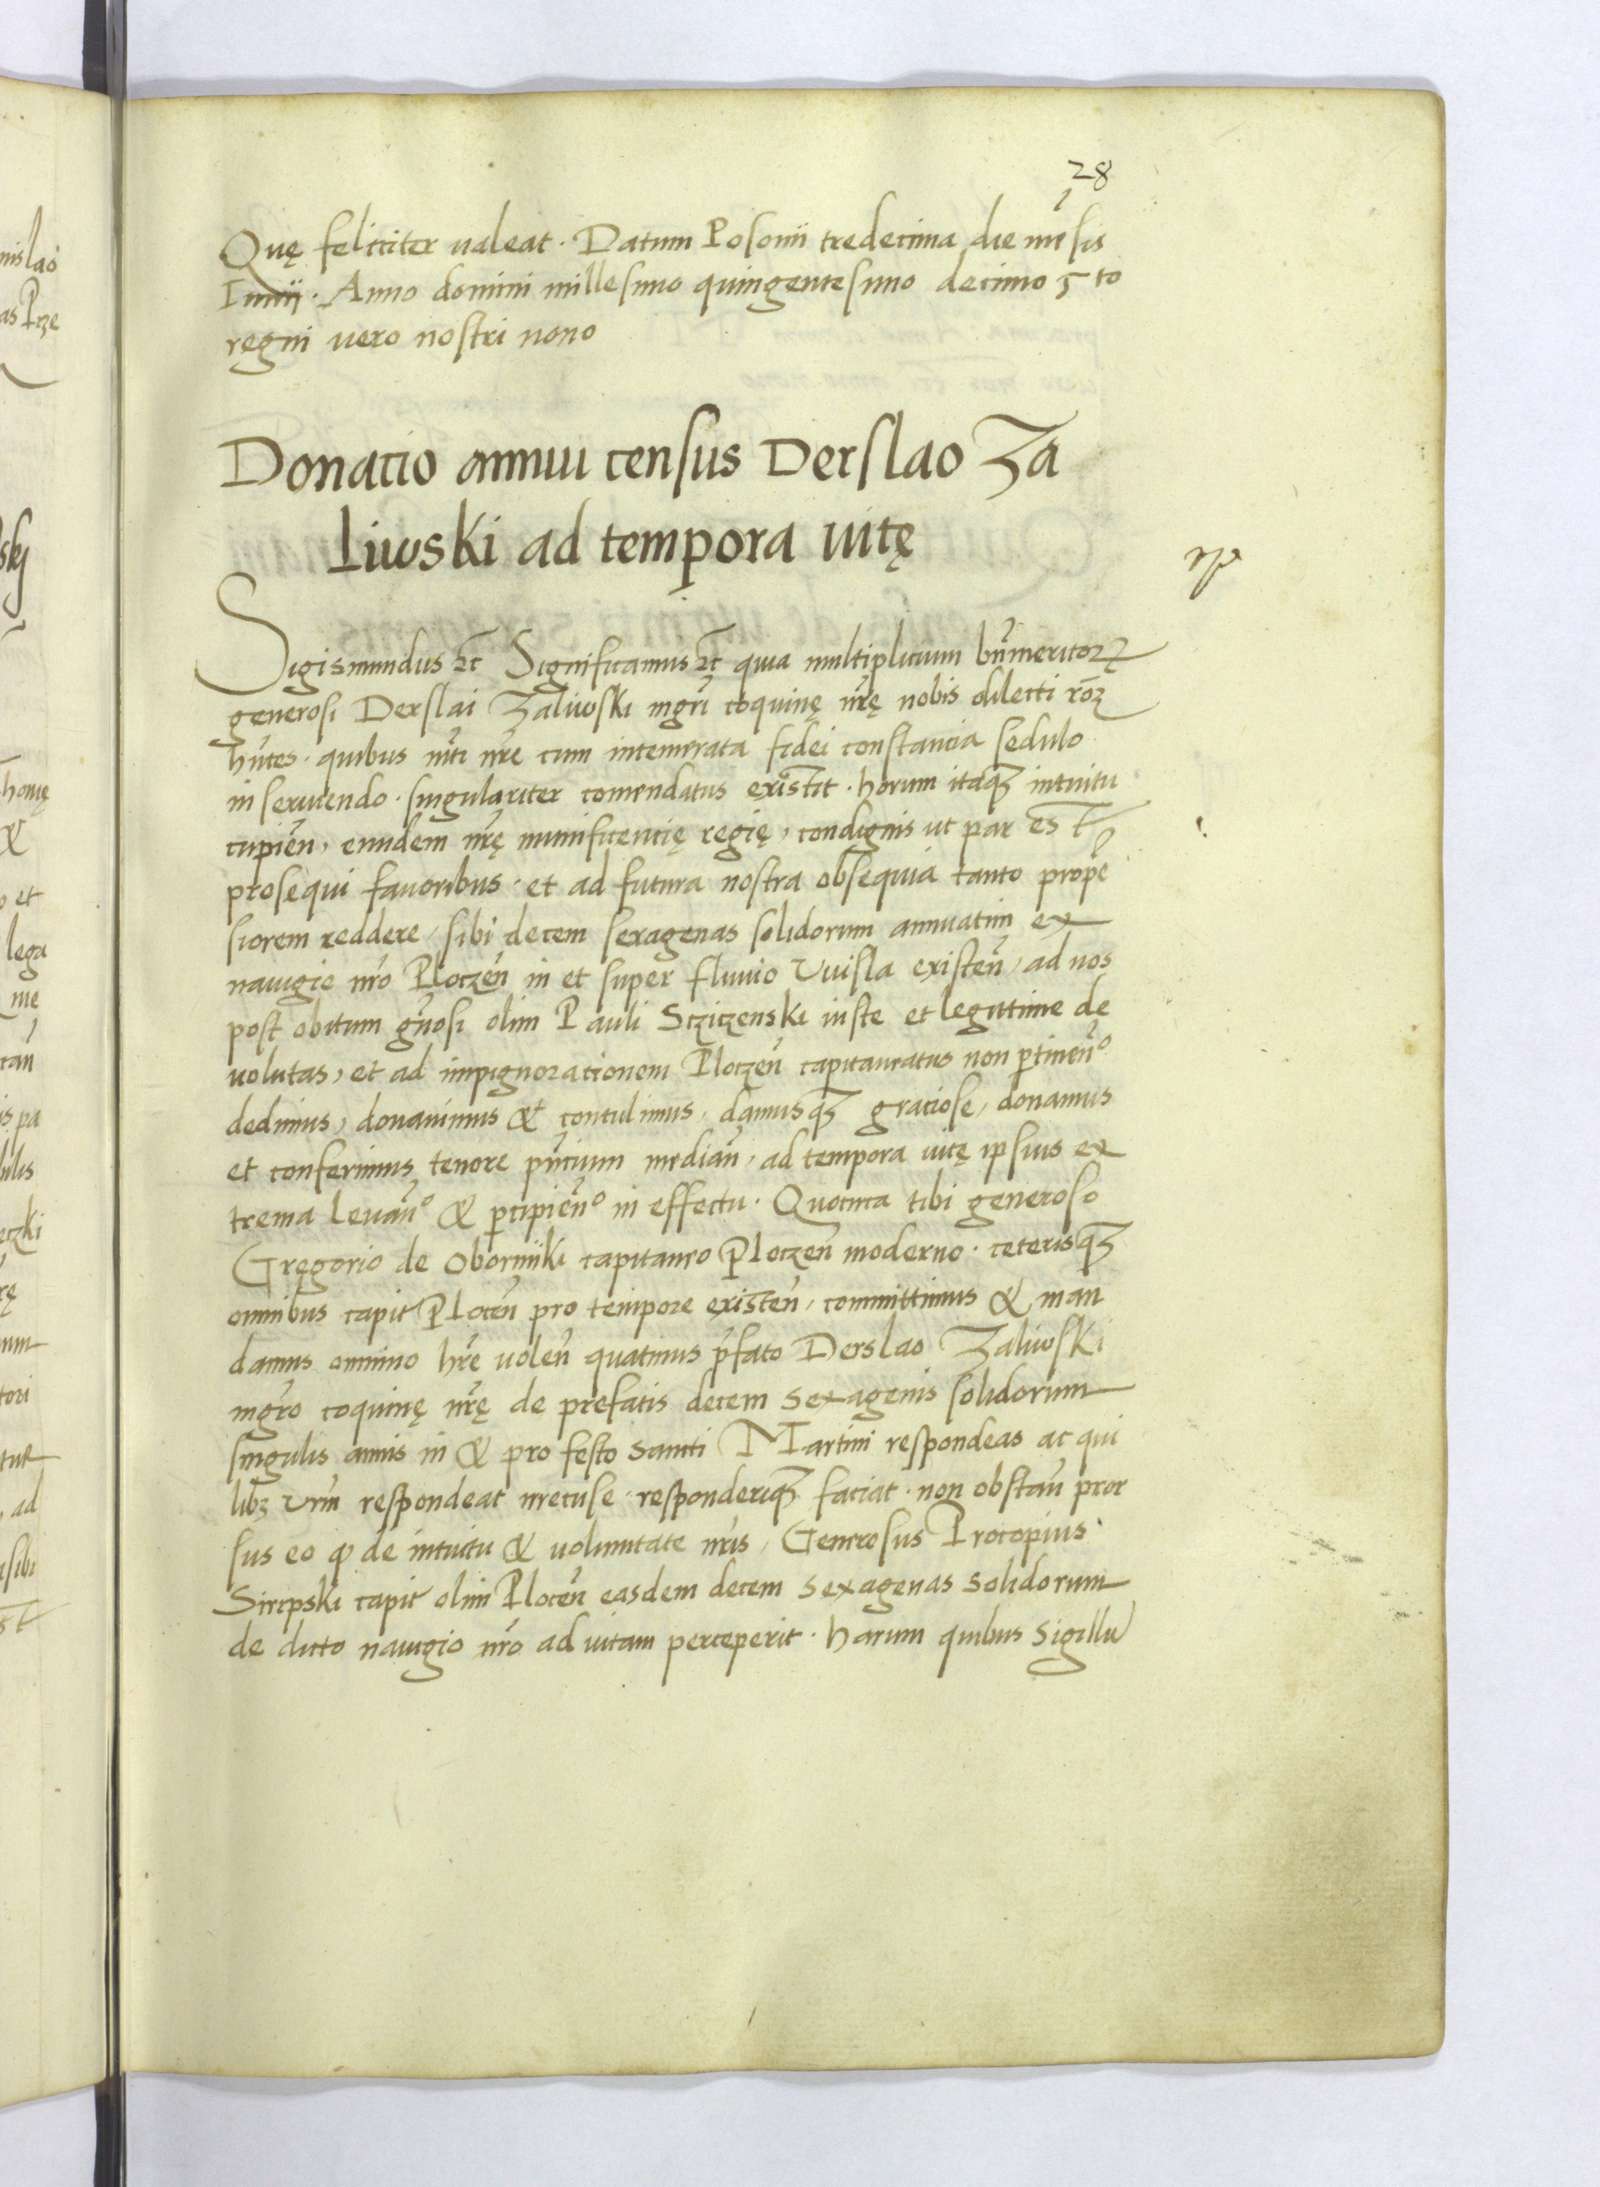 28
Quę feliciter ualeat · Datum Posonii tredecima die mẽsis
Iunii · Anno domini millesimo quingentesimo decimo 5to
regni uero nostri nono
Donatio annui census Derslao Za
liwski ad tempora uitę
Sigismundus ⁊c̃ Significamus ⁊c̃ quia multiplicium bñmeritoꝝ
generosi Derslai Zaliwski mgr̃i coquinę nr̃ę nobis dilecti rõꝫ
hñtes · quibus mti nr̃e cum intemerata fidei constancia sedulo
in seruiendo · singulariter comendatus existit · horum itaqꝫ intuitu
cupieñ, eundem nr̃ę munificencię regię, condignis ut par est
prosequi fauoribus · et ad futura nostra obsequia tanto propẽ
siorem reddere, sibi decem sexagenas solidorum annuatim ex
nauigio nr̃o Ploczeñ in et super fluuio Vuisla existeñ, ad nos
post obitum gñosi olim Pauli Scziczenski iuste et legittime de
uolutas, et ad impignoracionem Ploczeñ capitaneatus non ꝑtineñº
dedimus, donauimus & contulimus, damusqꝫ graciose, donamus
et conferimus tenore pñcium mediañ, ad tempora uitę ipsius ex
trema leuañº & ꝑcipieñº in effectu · Quocirca tibi generoso
Gregorio de Oborniiki capitaneo Ploczeñ moderno · ceterisqꝫ
omnibus capit Ploceñ pro tempore existeñ, committimus & man
damus omnino hr̃e uoleñ quatinus p̃fato Derslao Zaliwski
mgr̃o coquinę nr̃ę de prefatis decem sexagenis solidorum
singulis annis in & pro festo sancti Martini respondeas ac qui
libꝫ vr̃m respondeat irrecuse · responderiqꝫ faciat · non obstañ pror
sus eo ꝙ de intuitu & voluntate nr̃is, Generosus Procopius
Sirepski capit olim Ploceñ easdem decem sexagenas solidorum
de dicto nauigio nr̃o ad uitam perceperit · harum quibus sigillũ